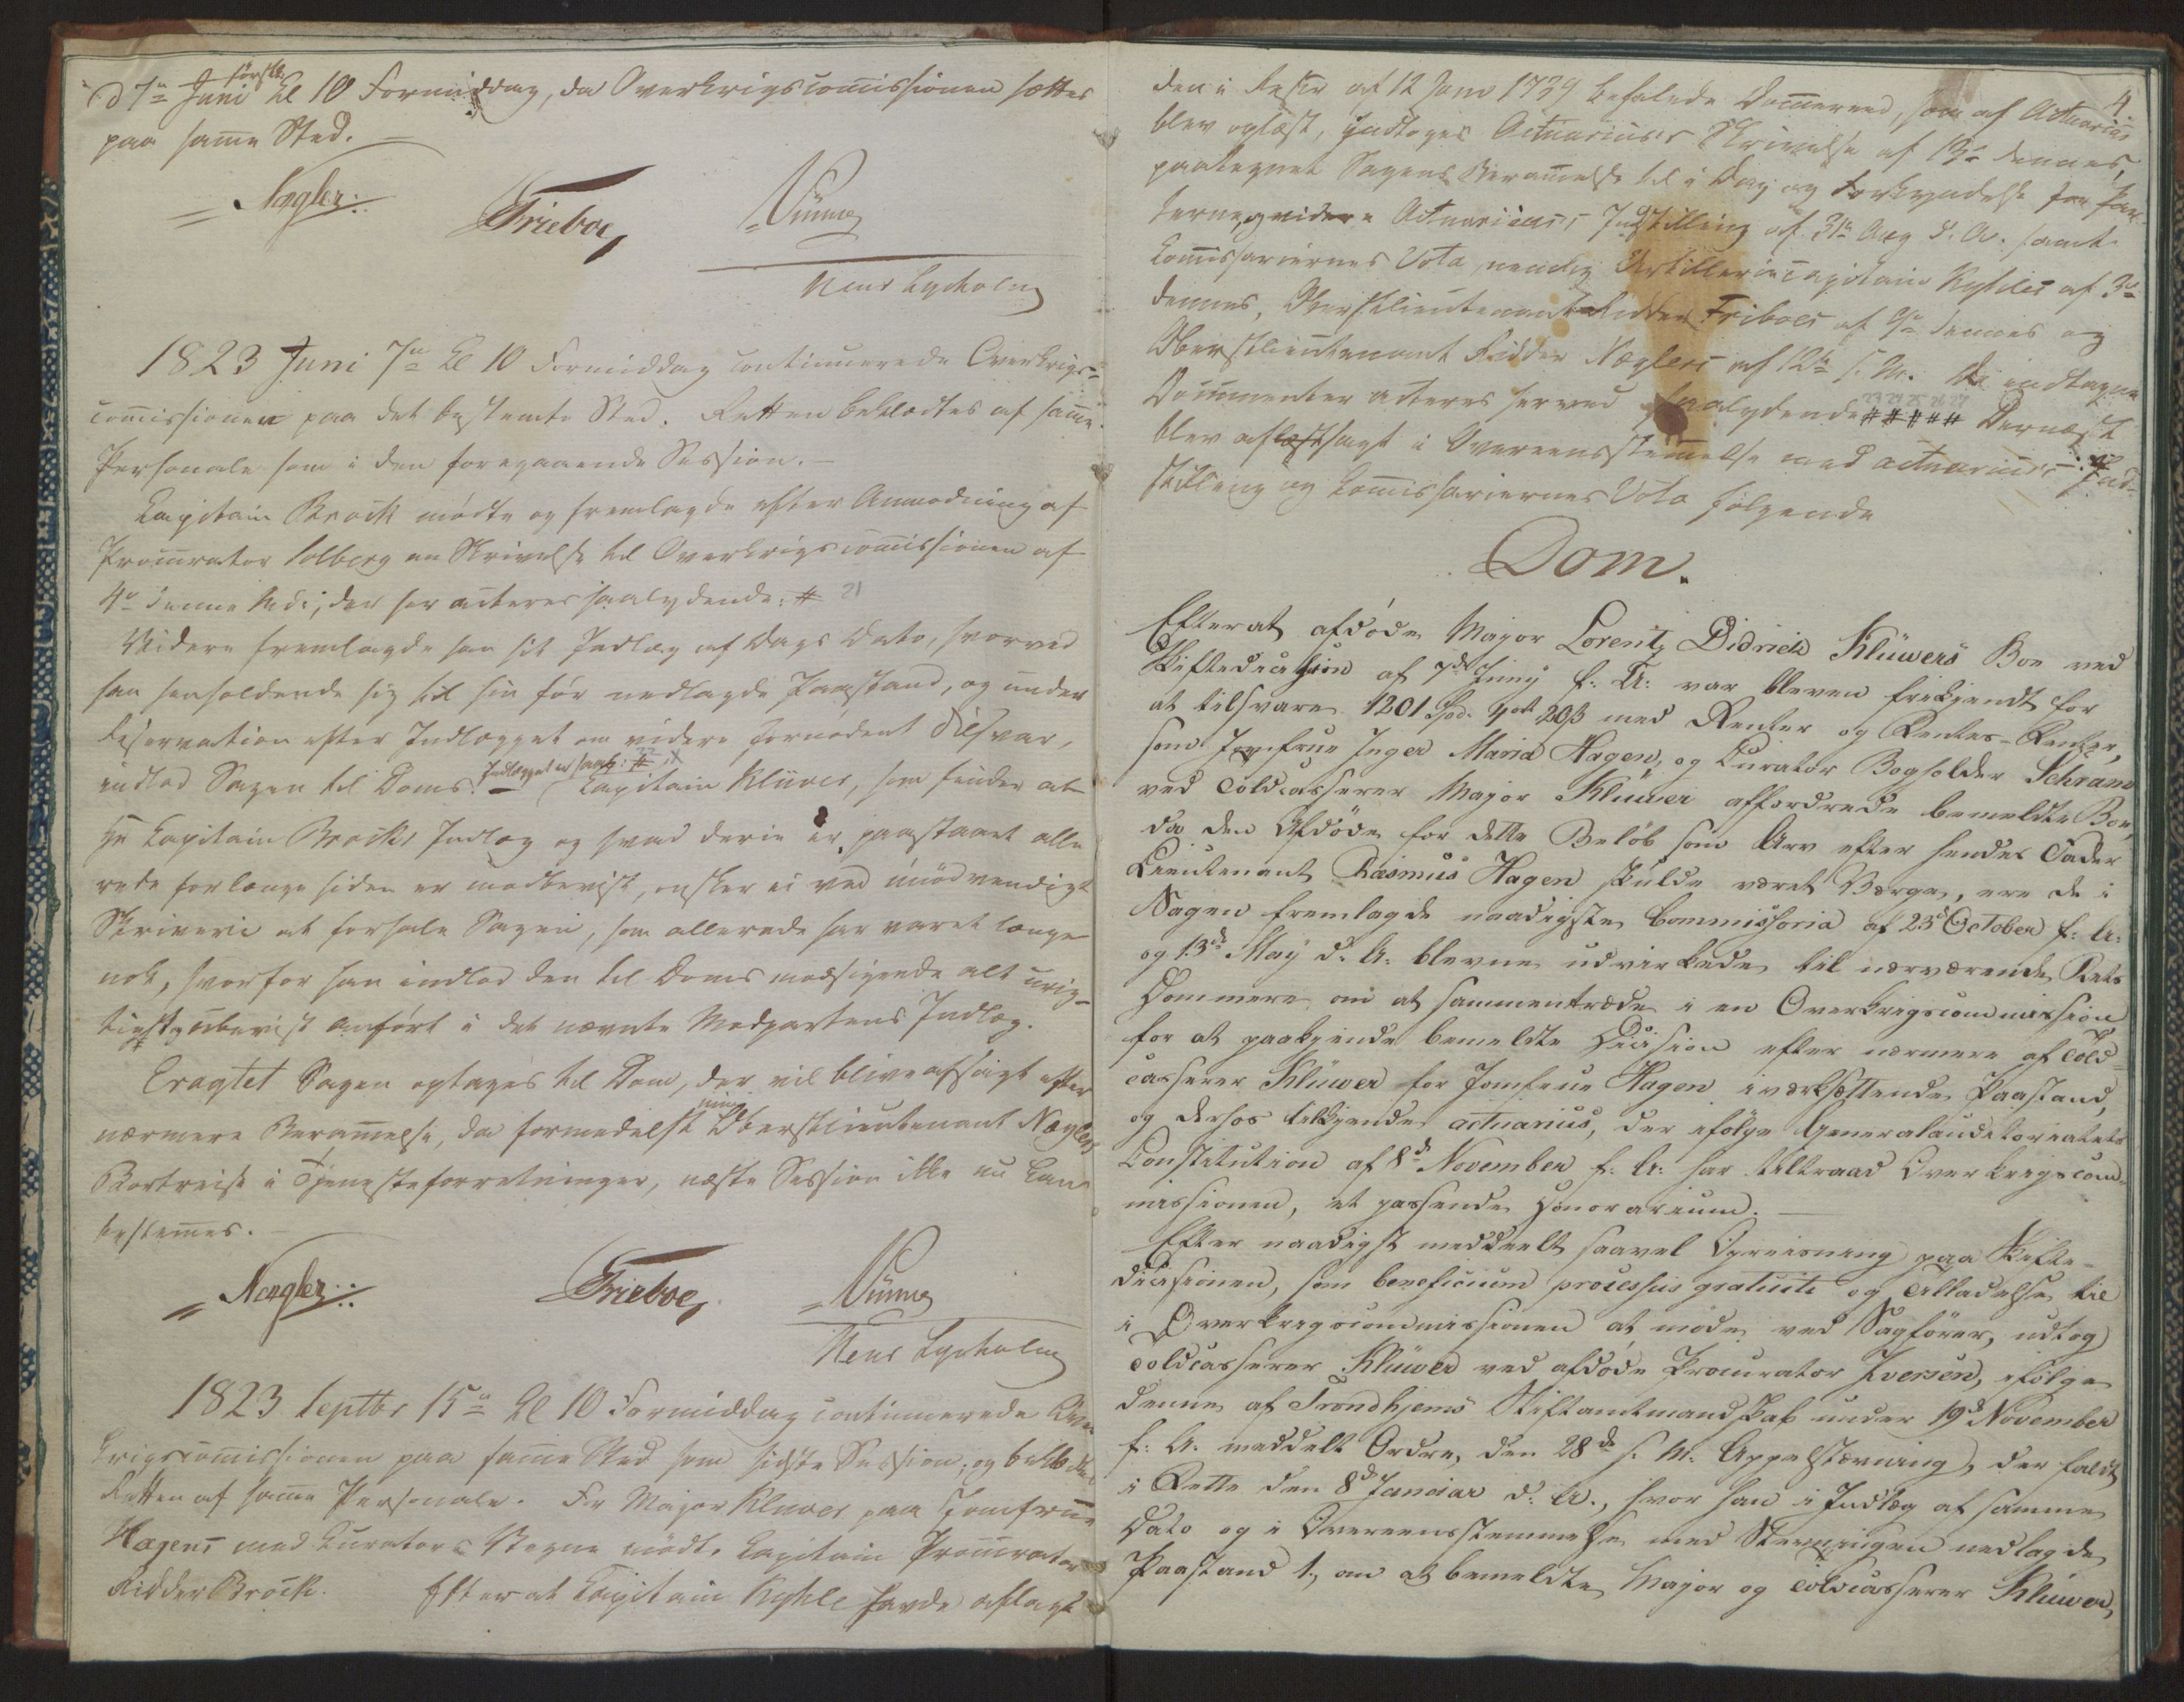 d 7de Juniførstk. Kl 10 Formiddag, da Overkrigscommissionen sættes
paa samme Sted. —
Nægler
Frieboe
Münne
Neus Lysholm
1823 Juni 7de Kl 10 Formiddag continuerede Overkrigs-
commissionen paa det bestemte Sted. Retten beklædtes af samme
Personale som i den foregaaende Session. —
Capitain Brock mødte og fremlagde efter Anmodning af
Procurator Solberg en Skrivelse til Overkrigscommissionen af
4de denne Mdr; der her acteres saalydende: # 21
Videre fremlagde han sit Indlæg af Dags Dato, hvorved
han henholdende sig til sin før nedlagde Paastand, og under
Reservation efter Indlægget om videre fornødent Tilsvar,
indlod Sagen til Doms. Indlægget er saal: # 22 Capitain Klüver, som finder at
Hr Capitain Brocks Indlæg og hvad derie er paastaaet alle
rede for længe siden er modbevist, ønsker ei ved unødvendigt
Skriveri at forhale Sagen, som allerede har varet længe
nok, hvorfor han indlod den til Doms modsigende alt urig-
tigst og ubevist anført i det nævnte Modpartens Indlæg.
Eragtet Sagen optages til Dom, der vil blive afsagt efter
nærmere Berammelse, da formedelst min Oberstlieutenant Næglers
Bortreise i Tjenesteforretninger, næste Session ikke nu kan
bestemmes. —
Nægler
Frieboe
Münne
Neus Lysholm
1823 Septbr 15de Kl 10 Formiddag continuerede Over
krigscommissionen paa samme Sted som sidste Session, og beklædtes
Retten af samme Personale. For Major Klüver paa Jomfrue
Hagens med Curators Vegne mødte Capitain Procurator
Ridder Brock. Efter at Capitain Kyhle havde aflagt
4.
den i Rescr af 12 Juni 1739 befalede Dommereed, som af Actuarius
blev oplæst, fremlagdes Actuariuses Skrivelse af 13de dennes,
paategnet Sagens Berammelse til i Dag og Forkyndelse for Par-
terne, videre Actuariuses Indstilling af 31te Aug d. A. samt
Commissariernes Vota, nemlig Artilleriecapitain Kyhles af 3de
dennes, Oberstlieutenant Ridder Friboes af 9de dennes og
Oberstlieutenant Ridder Næglers af 12te s. M. De indtagne
Documenter acteres herved saalydende # # # # # 23 24 25 26 27 Dernæst
blev aflæst sagt i Overeensstemmelse med actuariuses Ind-
stilling og Commissariernes Vota følgende
Dom.
Efterat afdøde Major Lorentz Didrich Klüwers Boe ved
Skiftedecision af 7de Juny f: A: var bleven frikjendt for
at tilsvare 1201 Spd. 4 ort 20 ß med Renter og Rentes-Renter,
som Jomfrue Inger Maria Hagen, og Curator Bogholder Schram
ved Toldcasserer Major Klüwer affordrede bemeldte Boe,
da den Afdøde for dette Beløb som Arv efter hendes Fader
Lieutenant Rasmus Hagen skulde været Værge, ere de i
Sagen fremlagde naadigste Commissoria af 23d October f: A:
og 13de May d: A: blevne udvirkede til nærværende Rets
Dommere om at sammentræde i en Overkrigscommission
for at paakjende bemeldte Decision efter nærmere af Told-
casserer Klüwer for Jomfrue Hagen iværksættende Paastand,
og derhos tilkjende actuarius, der ifølge Generalauditoriatets
Constitution af 8de November f: A: har tiltraad Overkrigscom-
missionen, et passende Honorarium. —
Efter naadigst meddeelt saavel Opreisning paa Skifte-
decisionen, som beneficium processus gratuiti og Tilladelse til
i Overkrigscommissionen at møde ved Sagfører, udtog
Toldcasserer Klüwer ved afdøde Procurator Iversen, ifølge
denne af Trondhjems Stiftamtmandskab under 19d November
f: A: meddelt Ordre, den 28de s. M. Appelstævning, der faldt
i Rette den 8d Januar d: A., hvor han i Indlæg af samme
Dato og i Overeensstemmelse med Stevningen nedlagde
Paastand 1, om at bemeldte Major og Toldcasserer Klüwer,